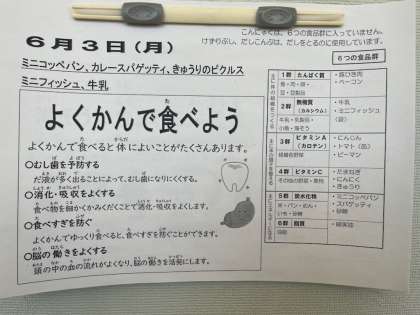 こんにゃくは、6つの食品群に入っていません。
けずりぶし、だしこんぶは、だしをとるのに使用しています。
6月3日(月)
ミニコッペパン、カレースパゲッティ、きゅうりのピクルス
ミニフィッシュ、牛乳
よくかんで食べよう
よくかんで食べると体によいことがたくさんあります。
○むし歯を予防する
だ液が多く出ることによって、むし歯になりにくくする。
○消化・吸収をよくする
食べ物を細かくかみくだくことで消化・吸収をよくします。
○食べすぎを防ぐ
よくかんでゆっくり食べると、食べすぎを防ぐことができます。
○脳の働きをよくする
頭の中の血の流れがよくなり、脳の働きを活発にします。
6つの食品群
1群 たんぱく質
・豚ひき肉
・ベーコン
2群 無機質
(カルシウム)
・牛乳
・ミニフィッシュ
3群 ビタミンA
(カロテン)
緑黄色野菜
・にんじん
・トマト(缶)
・ピーマン
4群 ビタミンC
その他の野菜・果物
・たまねぎ
・にんにく
・きゅうり
5群 炭水化物
・ミニコッペパン
・スパゲティ
・砂糖
6群 脂質